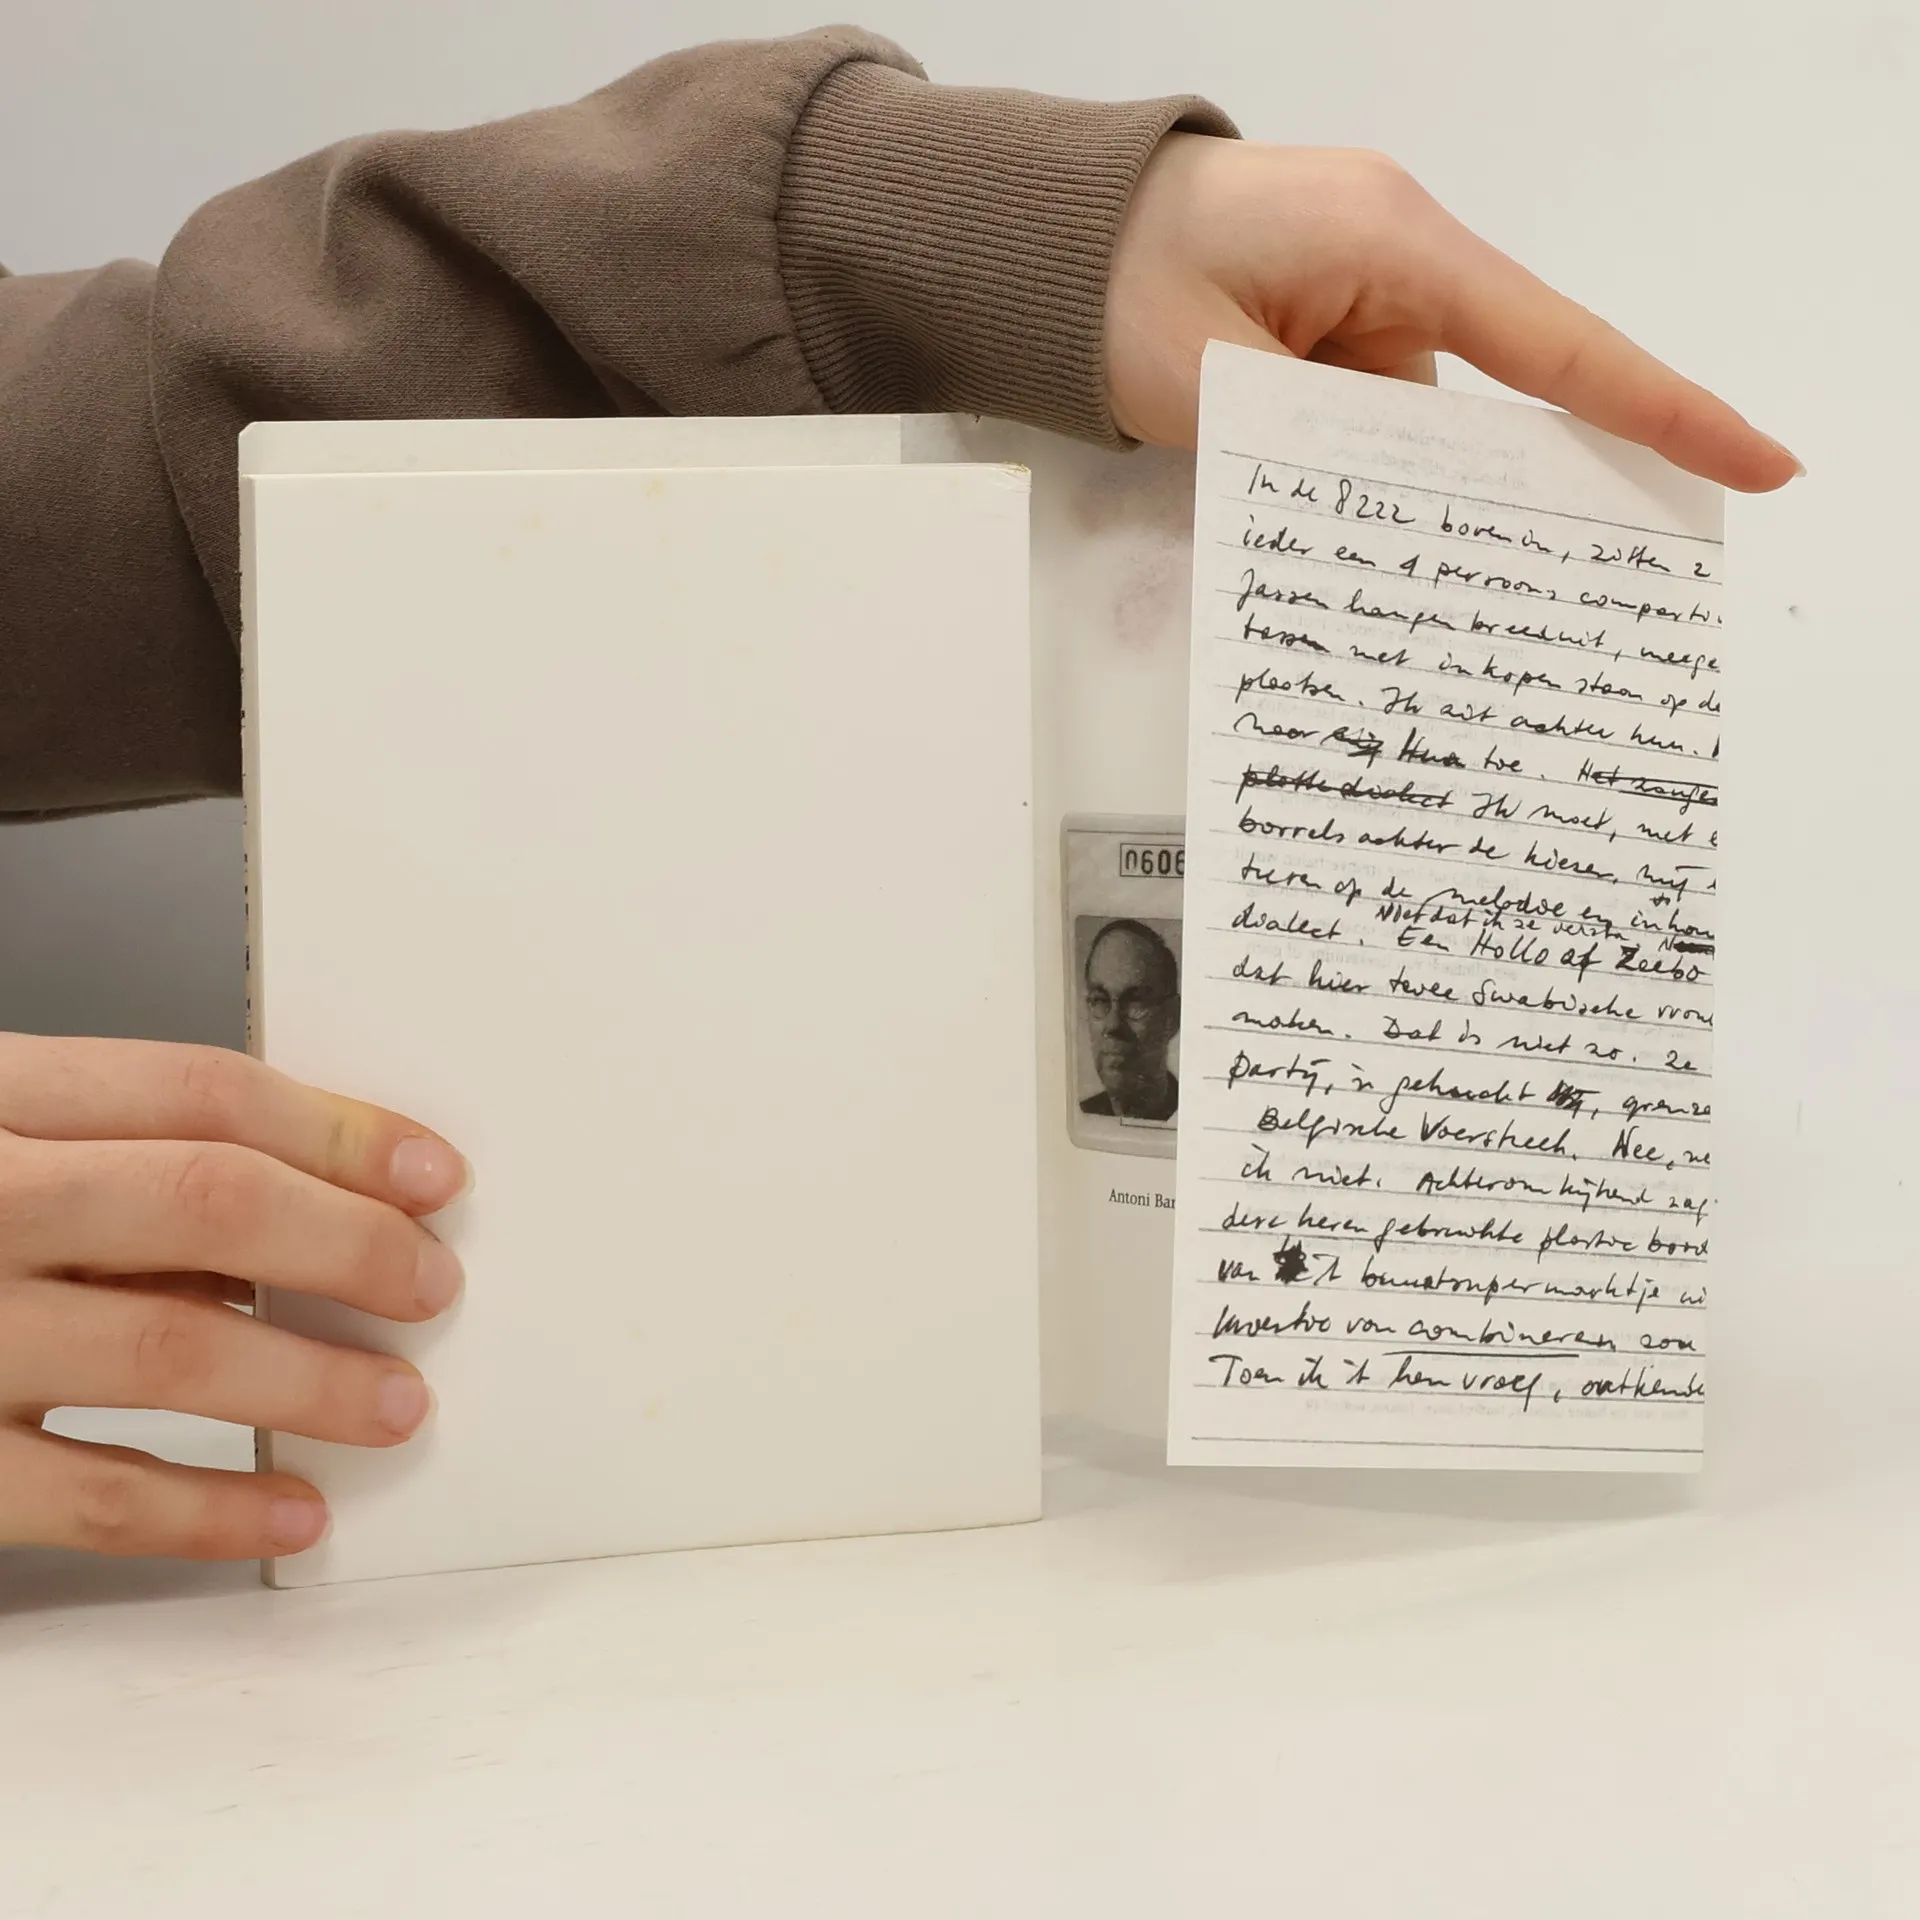 In de 8222 bovenin, zitten 2
ieder een 4 persoons comparti
Jassen hangen breeduit, meege
tassen met inkopen staan op de
plaatsen. Ik zit achter hen.
naar zij Hun toe. Het zanges
platte dialect Ik moet, met e
borrels achter de kiezen, mij
tieren op de melodie en inhou
Niet dat ik ze versta.
dialect. Een Hollo of Zeebo
dat hier twee Swabische vrou
maken. Dat is niet zo. Ze
partij, is gehucht, grenze
Belgische Voerstreek. Nee, ne
ik niet. Achterom kijkend zag
deze heren gebruikte plastic bord
van 't buurtsupermarktje
kwestie van combineren zou
Toen ik 't hen vroeg, ontkende
0606
Antoni Bar